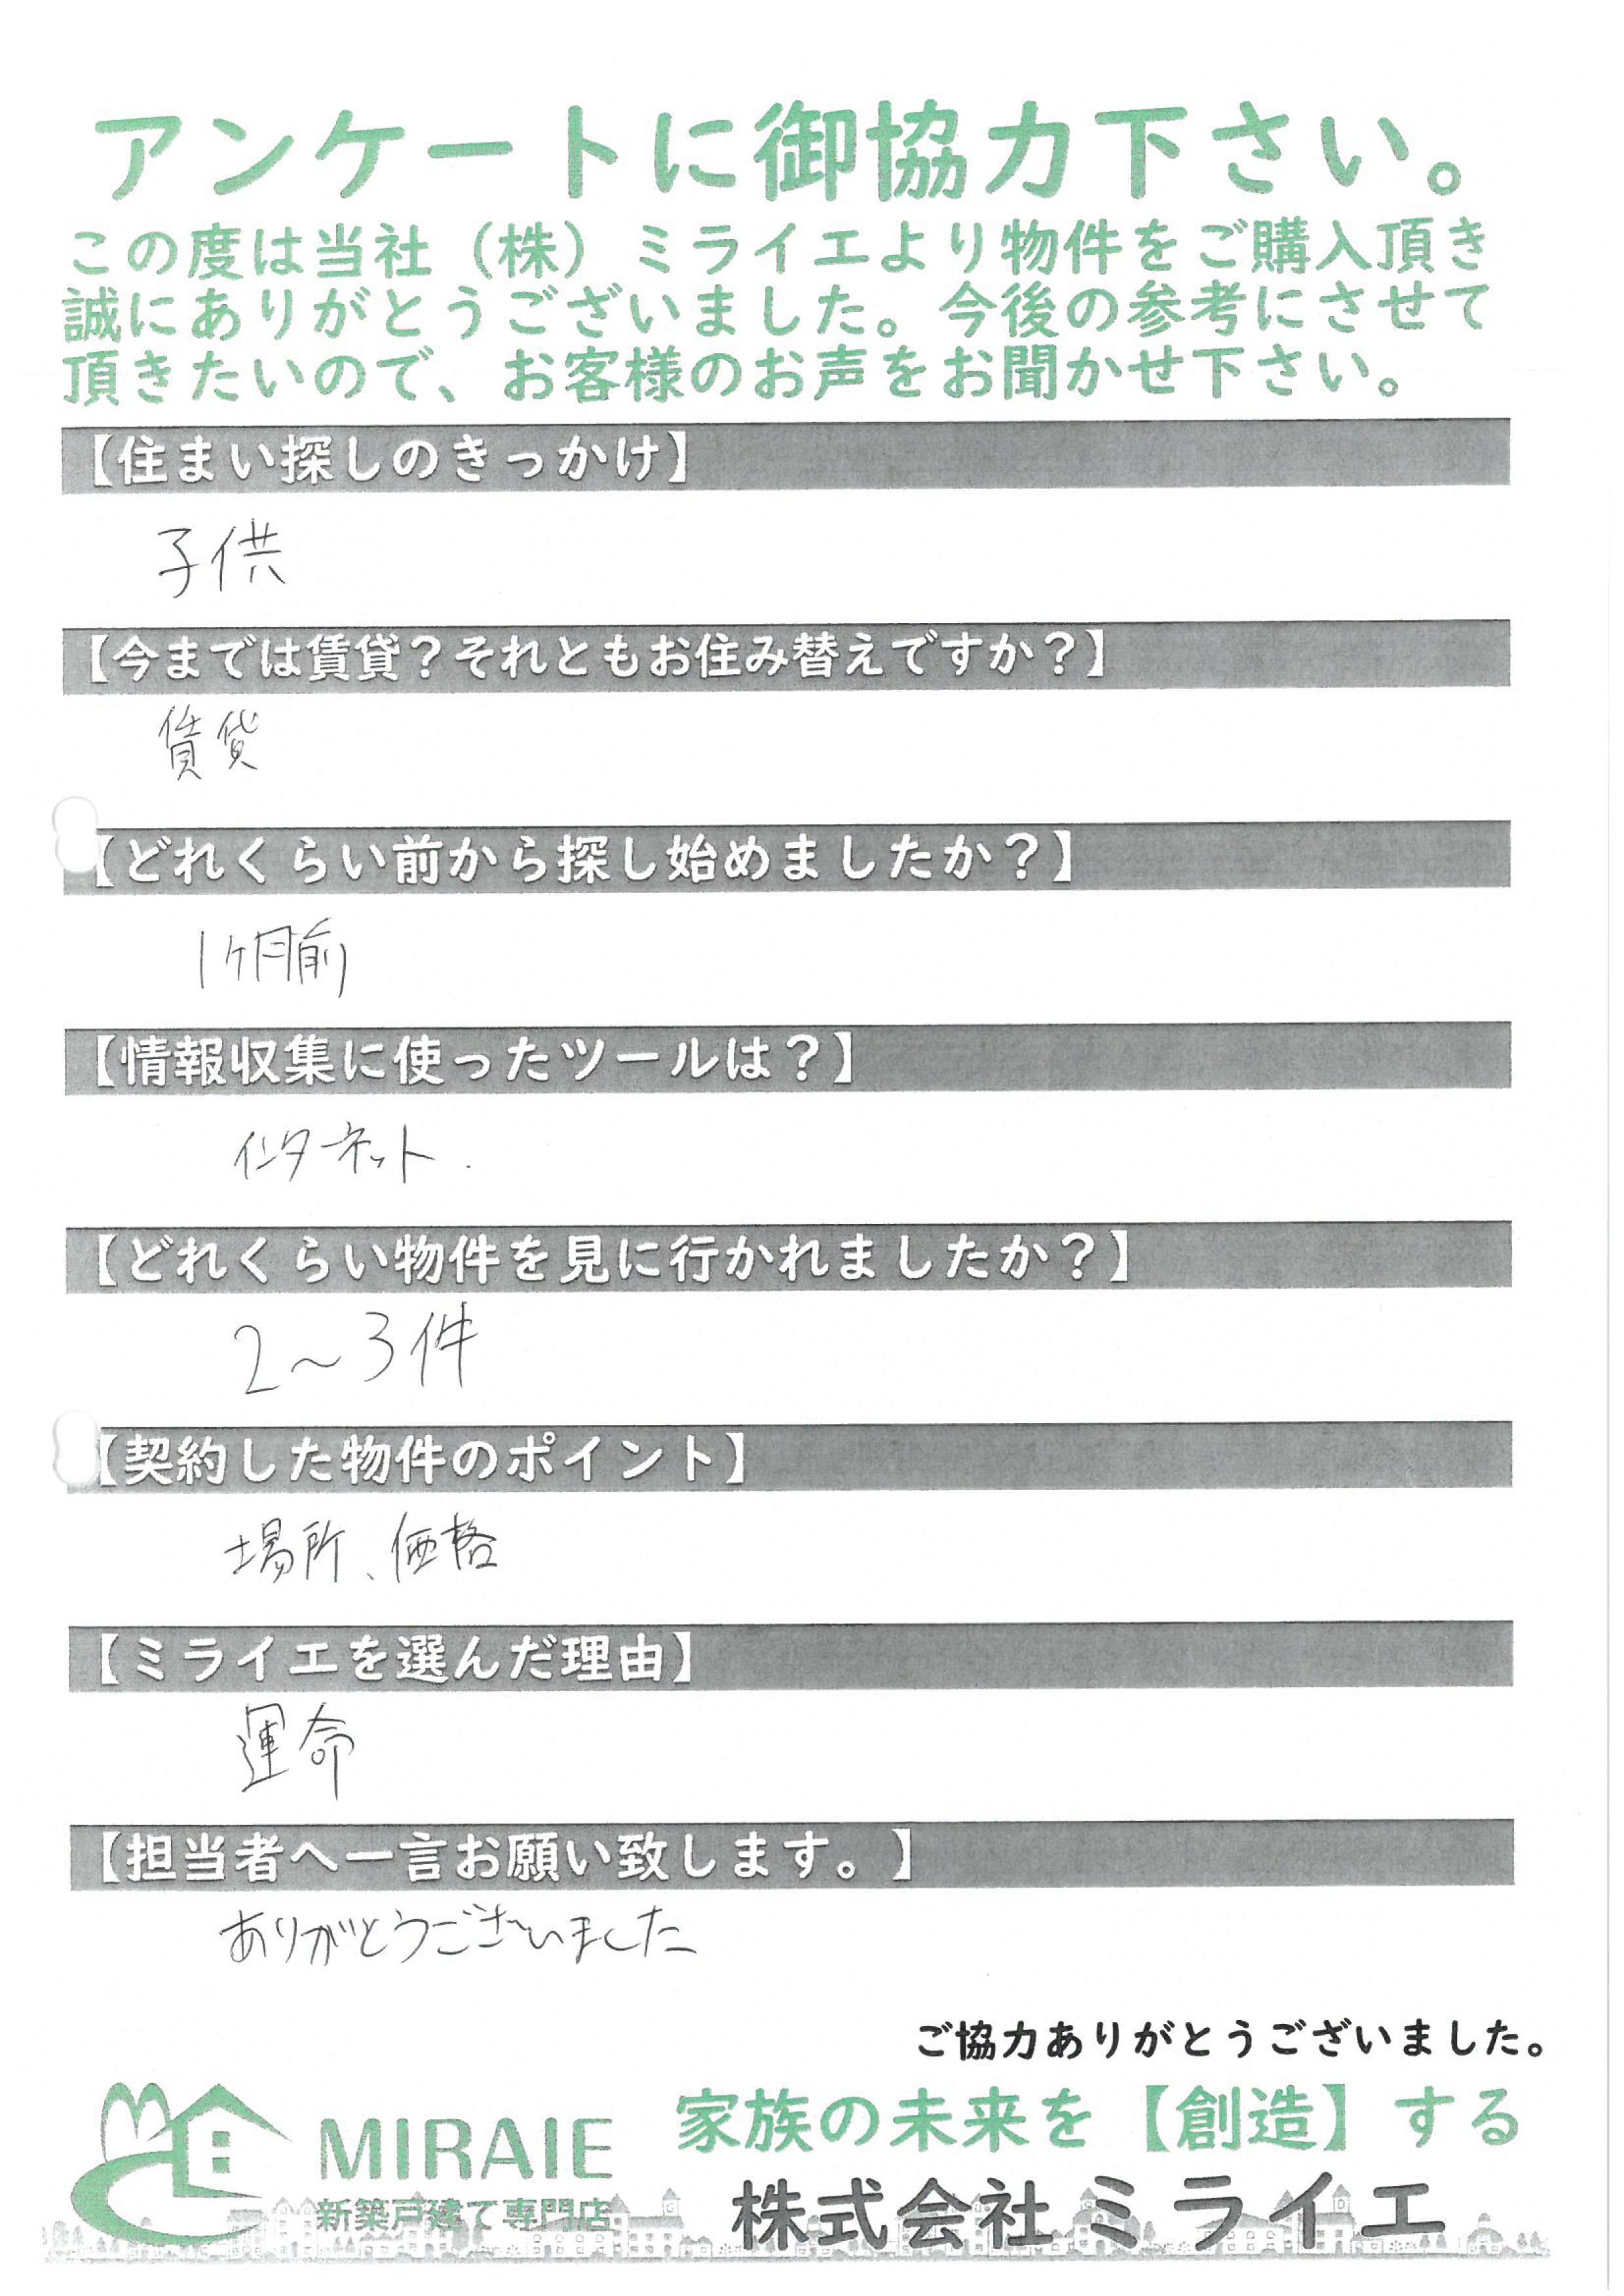 アンケートに御協力下さい。
この度は当社（株）ミライエより物件をご購入頂き
誠にありがとうございました。今後の参考にさせて
頂きたいので、お客様のお声をお聞かせ下さい。
【住まい探しのきっかけ】
子供
【今までは賃貸？それともお住み替えですか？】
賃貸
【どれくらい前から探し始めましたか？】
1ヶ月前
【情報収集に使ったツールは？】
インターネット.
【どれくらい物件を見に行かれましたか？】
2～3件
【契約した物件のポイント】
場所、価格
【ミライエを選んだ理由】
運命
【担当者へ一言お願い致します。】
ありがとうございました
ご協力ありがとうございました。
家族の未来を【創造】する
MIRAIE
新築戸建て専門店
株式会社ミライエ